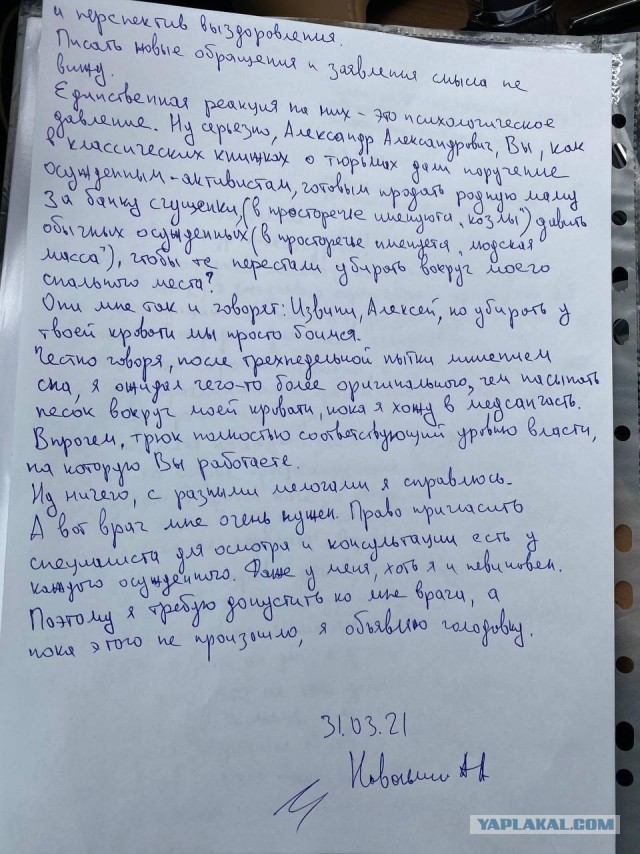 и перспектив выздоровления.
Писать новые обращения и заявления смысла не
вижу.
Единственная реакция на них - это психологическое
давление. Ну серьезно, Александр Александрович, Вы, как
в классических книжках о тюрьмах дали поручение
осужденным-активистам, готовым продать родную маму
за банку сгущенки, (в просторечие именуются „козлы") давить
обычных осужденных (в просторечье именуется „людская
масса"), чтобы те перестали убирать вокруг моего
спального места?
Они мне так и говорят: Извини, Алексей, но убирать у
твоей кровати мы просто боимся.
Честно говоря, после трехнедельной пытки лишением
сна, я ожидал чего-то более оригинального, чем насыпать
песок вокруг моей кровати, пока я хожу в медсанчасть.
Впрочем, трюк полностью соответствующий уровню власти,
на которую Вы работаете.
Ну ничего, с разными мелочами я справлюсь.
А вот врач мне очень нужен. Право пригласить
специалиста для осмотра и консультации есть у
каждого осужденного. Даже у меня, хоть я и невиновен.
Поэтому я требую допустить ко мне врача, а
пока этого не произошло, я объявляю голодовку.
31.03.21
Навальный А А
YAPLAKAL.COM